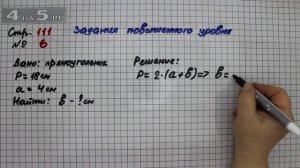 4 a 5
Стр. 111
№ 6
Задания повышенного уровня
Дано: прямоугольник
P = 18 см
a = 4 см
Найти: b - ? см
Решение:
P = 2·(a+b) => b =